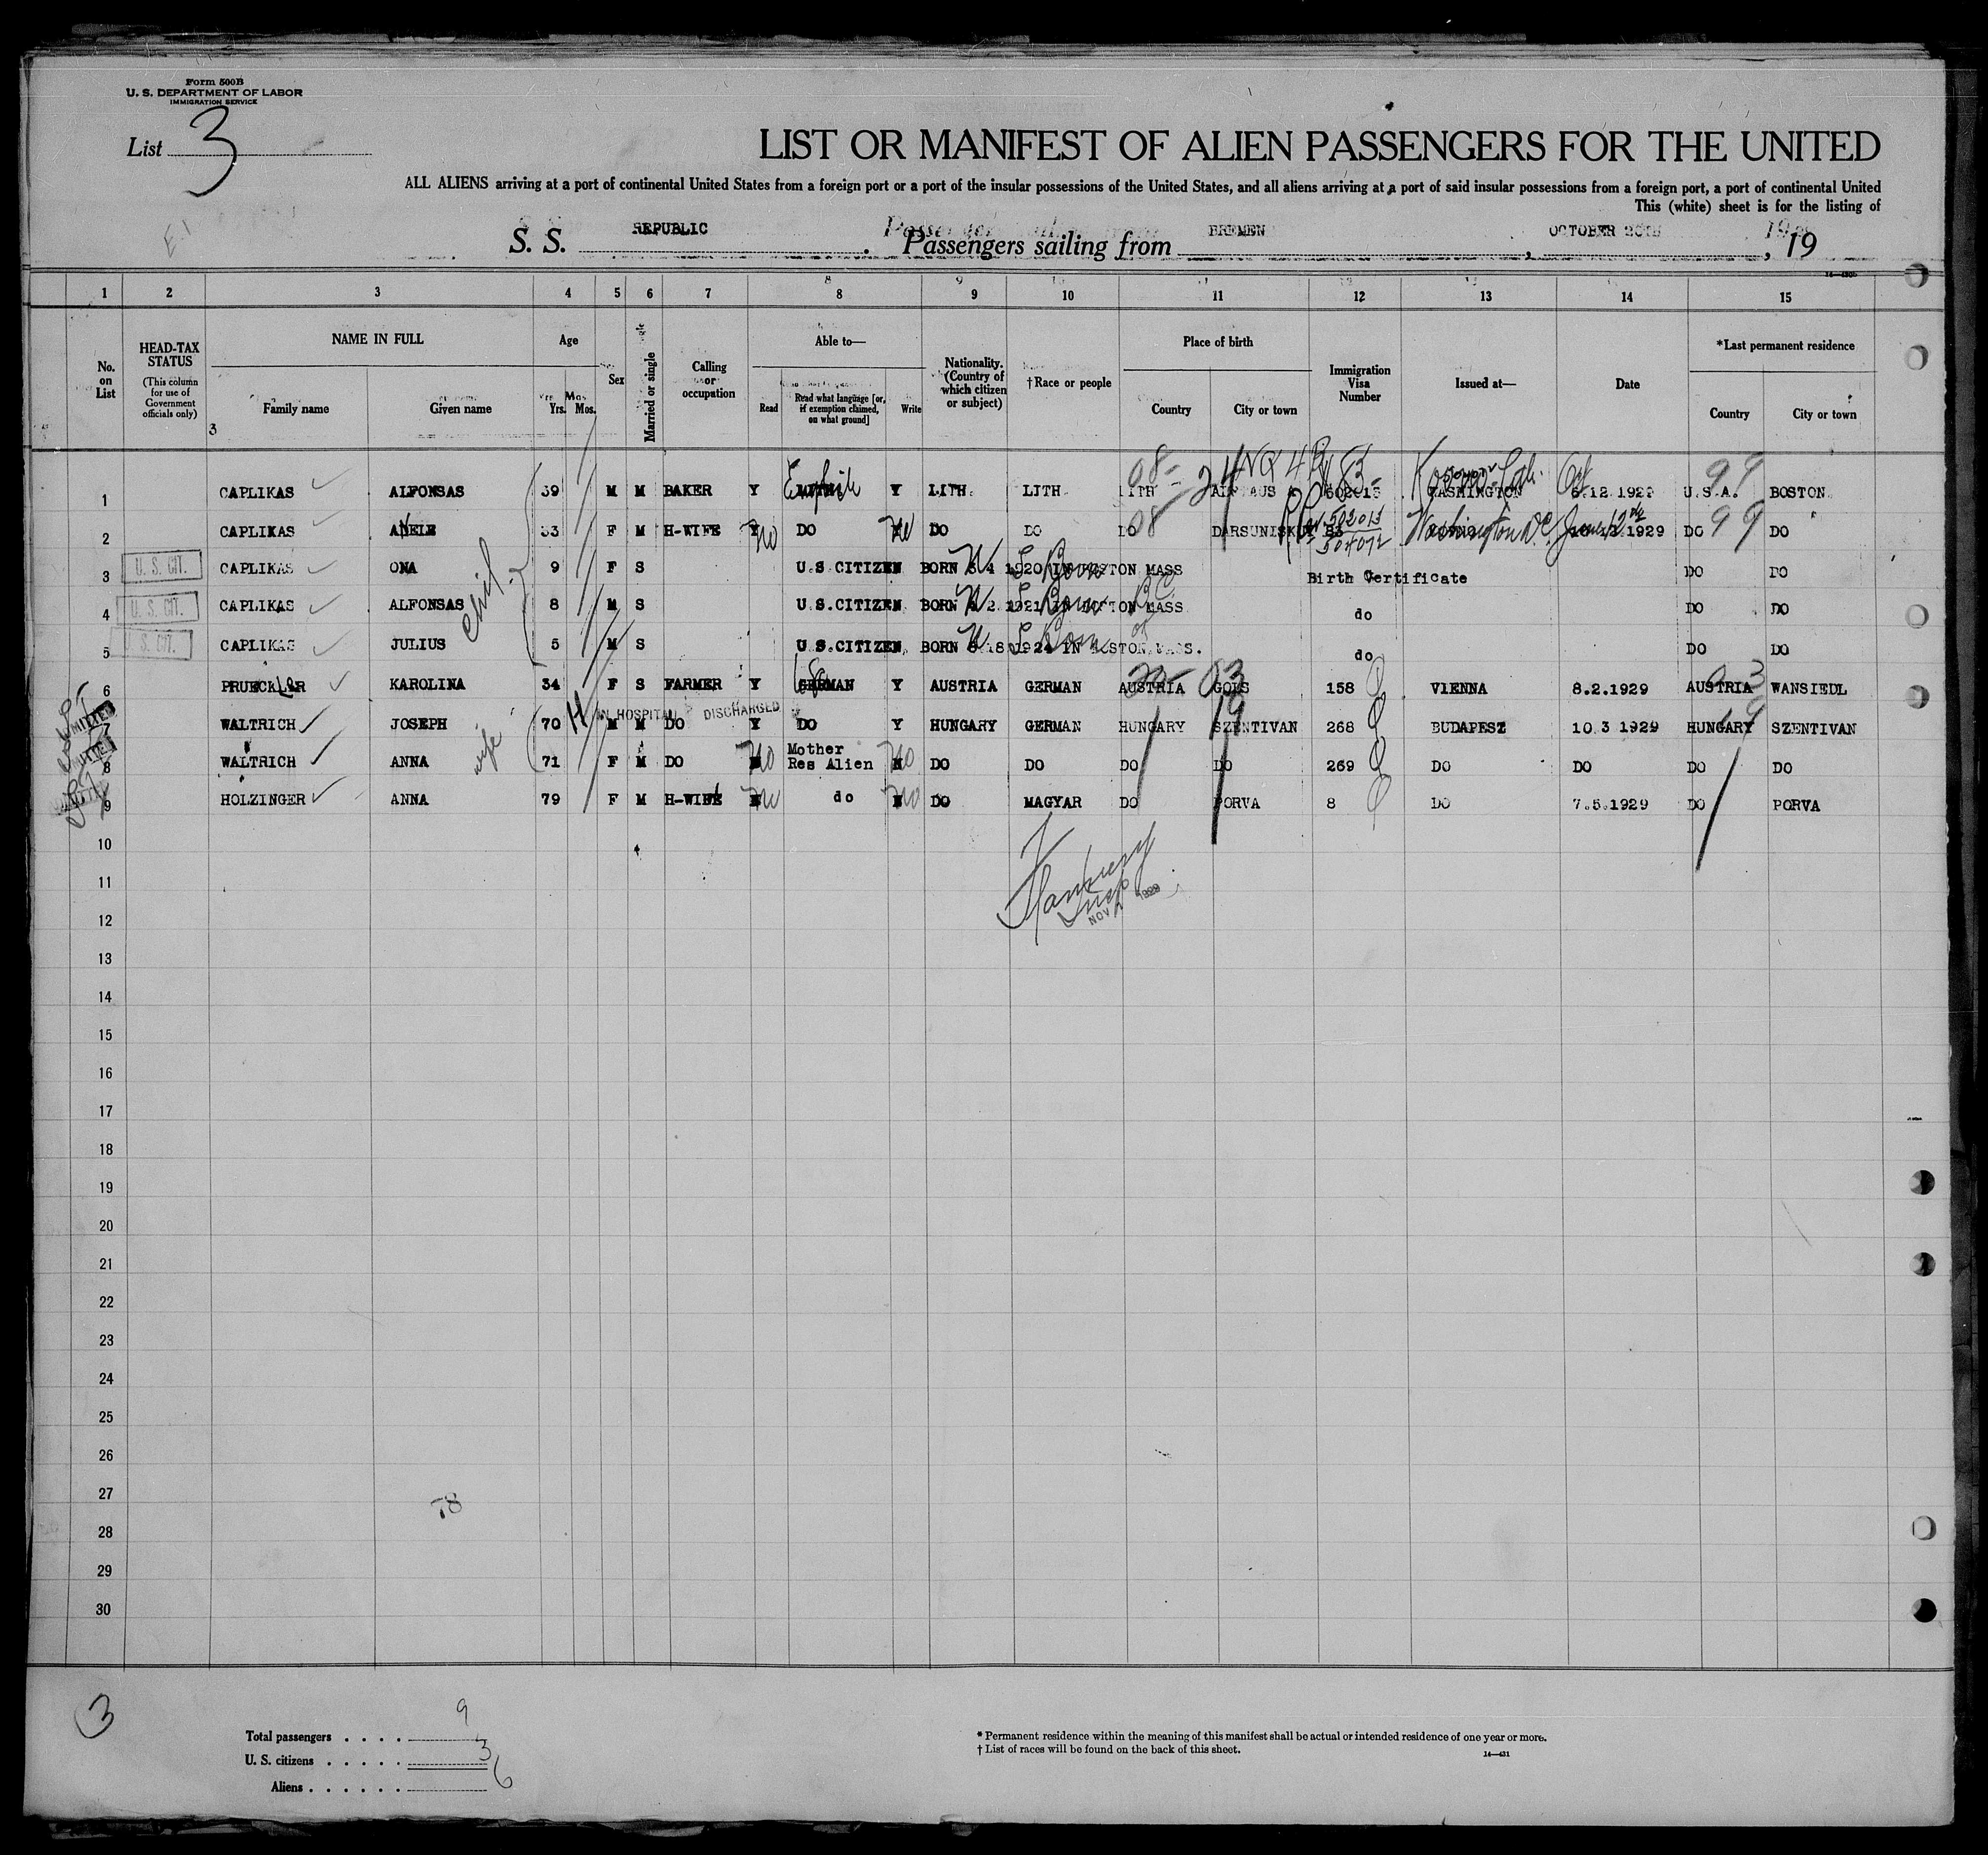 Form 500B
U. S. DEPARTMENT OF LABOR
IMMIGRATION SERVICE
List 3
LIST OR MANIFEST OF ALIEN PASSENGERS FOR THE UNITED
ALL ALIENS arriving at a port of continental United States from a foreign port or a port of the insular possessions of the United States, and all aliens arriving at a port of said insular possessions from a foreign port, a port of continental United
This (white) sheet is for the listing of
S. S. REPUBLIC. Passengers sailing from BREMEN, OCTOBER, 19
1 2 3 4 5 6 7 8 9 10 11 12 13 14 15
No. on List
HEAD-TAX STATUS
(This column for use of Government officials only)
NAME IN FULL
Family name Given name
Age
Yrs. Mos.
Sex
Married or single
Calling or occupation
Able to—
Read
Read what language [or, if exemption claimed, on what ground]
Write
Nationality. (Country of which citizen or subject)
†Race or people
Place of birth
Country City or town
Immigration Visa Number
Issued at—
Date
*Last permanent residence
Country City or town
1 CAPLIKAS ALFONSAS 39 M M BAKER Y English Y LITH. LITH LITH WASHINGTON U.S.A. BOSTON
2 CAPLIKAS ADELE 33 F M H-WIFE no DO no DO DO DO 08 Washington DC 1929 DO 99 DO
3 U. S. CIT. CAPLIKAS ONA 9 F S U.S CITIZEN BORN 1920 IN MASS Birth Certificate DO DO
4 U. S. CIT. CAPLIKAS ALFONSAS 8 M S U.S.CITIZEN BORN 1921 MASS do DO DO
5 U. S. CIT. CAPLIKAS JULIUS 5 M S U.S.CITIZEN BORN 1924 IN MASS. do DO DO
chil.
6 PRUECKLER KAROLINA 34 F S FARMER Y GERMAN Y AUSTRIA GERMAN AUSTRIA GOLS 158 VIENNA 8.2.1929 AUSTRIA WANSIEDL
IN HOSPITAL DISCHARGED
7 WALTRICH JOSEPH 70 M M DO Y DO Y HUNGARY GERMAN HUNGARY SZENTIVAN 268 BUDAPESZ 10 3 1929 HUNGARY SZENTIVAN
8 WALTRICH wife ANNA 71 F M DO no Mother Res Alien no DO DO DO DO 269 DO DO DO DO
9 HOLZINGER ANNA 79 F M H-WIFE no do no DO MAGYAR DO PORVA 8 DO 7.5.1929 DO PORVA
10
11
NOV 1929
12
13
14
15
16
17
18
19
20
21
22
23
24
25
26
27
78
28
29
30
3
Total passengers . . . . 9
U. S. citizens . . . . . 3
Aliens . . . . . . 6
* Permanent residence within the meaning of this manifest shall be actual or intended residence of one year or more.
† List of races will be found on the back of this sheet.
14—431